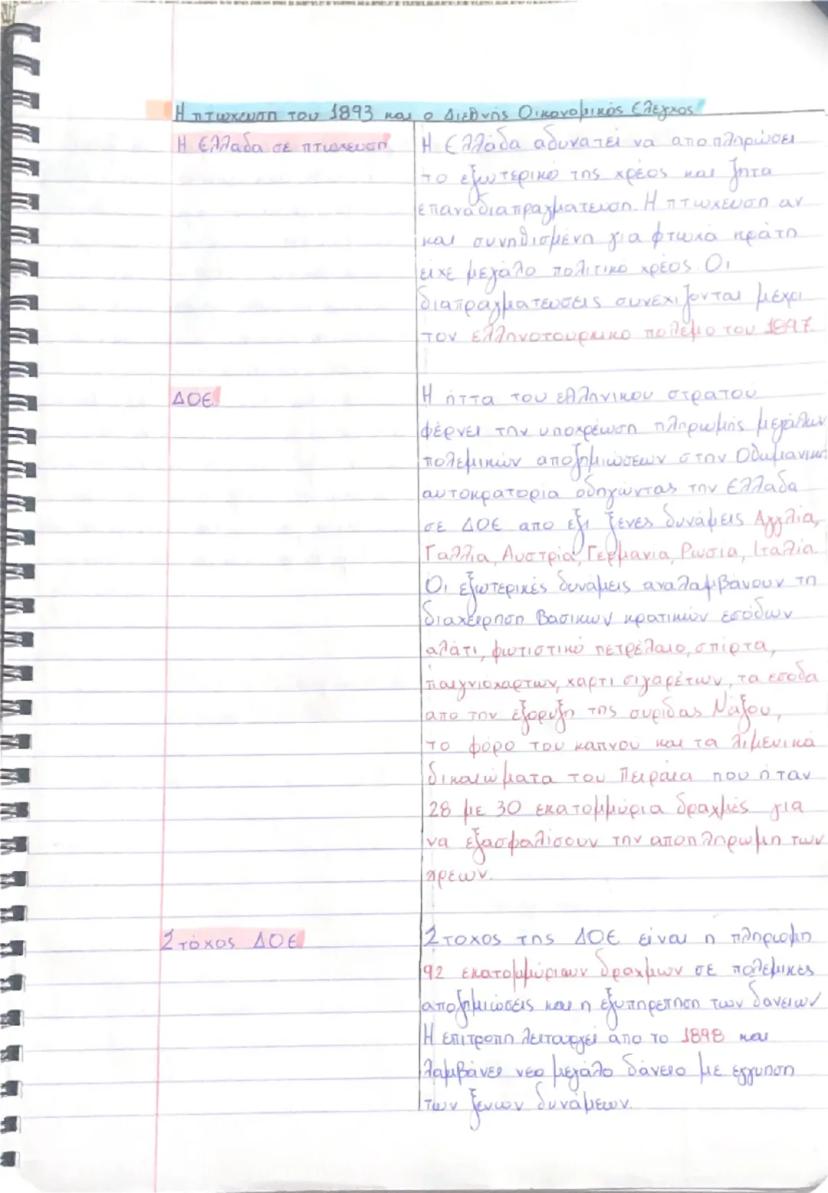 Η πτωχευση του 1893 και ο Διεθνής Οικονομικός Ελεγχος
Η Ελλαδα σε πτωχευση
Η Ελλάδα αδυνατεί να αποπληρώσει
το εξωτερικό της χρέος και ζητα
επαναδιαπραγματευση. Η πτωχευση αν
και συνηθισμένη για φτωχα κράτη
είχε μεγάλο πολιτικο χρέος Οι
διαπραγματευσεις συνεχιζονται μέχρι
τον ελληνοτουρκικο πολεμο του 1897
ΔΟΕ
Η ήττα του ελληνικου στρατου
φέρνει την υποχρέωση πληρωμής μεγάλων
πολεμικών αποζημιώσεων στην Οθωμανικη
αυτοκρατορια οδηγώντας την Ελλαδα
σε ΔΟΕ απο εξι ξένες δυνάμεις Αγγλία,
Γαλλια, Αυστρία, Γερμανια, Ρωσια, Ιταλία
Οι εξωτερικές δυναμεις αναλαμβάνουν τη
διαχείρηση Βασικων κρατικών εσόδων
αλάτι, φωτιστικό πετρέλαιο, σπίρτα,
παιγνιοχαρτων, χαρτι σιγαρέτων, τα εσοδα
απο την εξορυξη της συριδας Νάξου,
το φορο του καπνου και τα λιμενικά
δικαιώματα του Πειραία που ηταν
28 με 30 εκατομμύρια δραχμές για
να εξασφαλίσουν την αποπληρωμη των
χρεων.
Στόχος ΔΟΕ
Στοχος της ΔΟΕ είναι η πληρωμη
92 εκατομμύριων δραχμων σε πολεμικές
αποζημιώσεις και η εξυπηρετηση των δανειων
Η επιτροπη λειτουργεί απο το 1898 και
λαμβάνει νεο μεγάλο δάνειο με εγγυηση
των ξενων δυνάμεων.